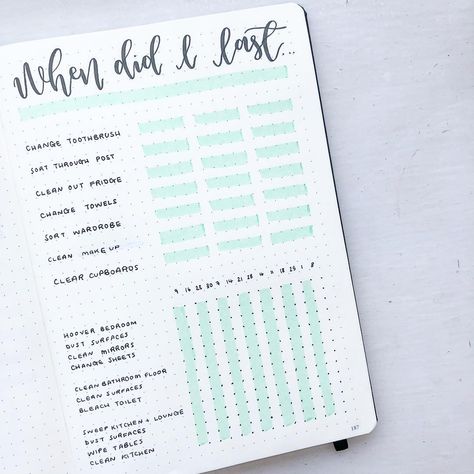 When did I last...
CHANGE TOOTHBRUSH
SORT THROUGH POST
CLEAN OUT FRIDGE
CHANGE TOWELS
SORT WARDROBE
CLEAN MAKE UP
CLEAR CUPBOARDS
9 16 23 30 7 14 21 28 4 11 18 25 1 8
HOOVER BEDROOM
DUST SURFACES
CLEAN MIRRORS
CHANGE SHEETS
CLEAN BATHROOM FLOOR
CLEAN SURFACES
BLEACH TOILET
SWEEP KITCHEN + LOUNGE
DUST SURFACES
WIPE TABLES
CLEAN KITCHEN
187